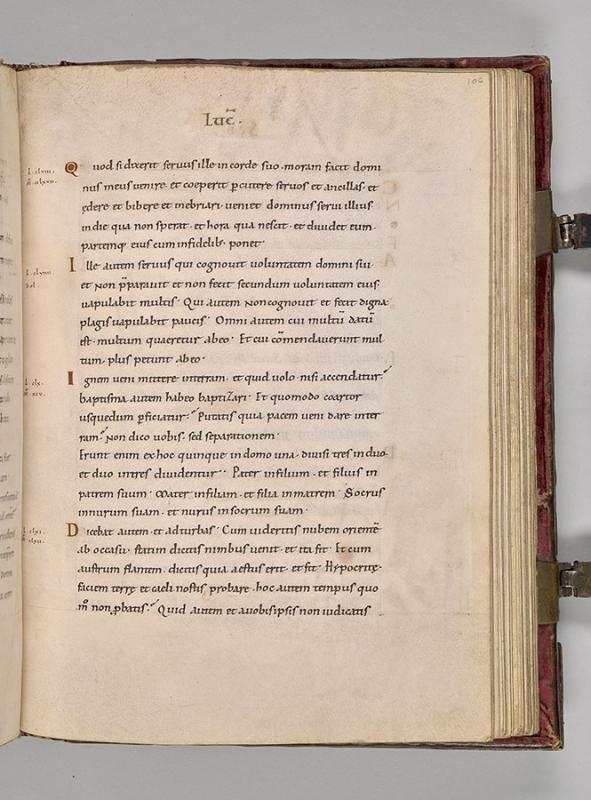 106
Luc̄.
Quod si dixerit seruus ille in corde suo. moram facit domi
nus meus uenire. et coeperit ꝑcutere seruos et ancillas. et
ędere et bibere et inebriari. ueniet dominus serui illius
in die qua non sperat. et hora qua nescit. et diuidet eum.
partemq; eius cum infidelib; ponet.
Ille autem seruus qui cognouit uoluntatem domini sui.
et non p̄parauit et non fecit secundum uoluntatem eius.
uapulabit multis. Qui autem non cognouit et fecit digna
plagis uapulabit paucis. Omni autem cui multū datū
est. multum quaeretur ab eo. Et cui cōmendauerunt mul
tum. plus petunt ab eo.
Ignem ueni mittere in terram. et quid uolo. nisi accendatur?
baptisma autem habeo baptizari. Et quomodo coartor
usquedum ꝑficiatur? Putatis quia pacem ueni dare in ter
ram? Non dico uobis. sed separationem.
Erunt enim ex hoc quinque in domo una. diuisi tres in duo.
et duo in tres diuidentur. Pater in filium. et filius in
patrem suum. Mater in filiam. et filia in matrem. Socrus
in nurum suam. et nurus in socrum suam.
Dicebat autem et ad turbas. Cum uideritis nubem orientē
ab occasu. statim dicitis nimbus uenit. et ita fit. Et cum
austrum flantem. dicitis quia aestus erit. et fit. Hypocritę.
faciem terrę et caeli nostis probare. hoc autem tempus quo
m̊ non ꝓbatis? Quid autem et a uobis ipsis non iudicatis